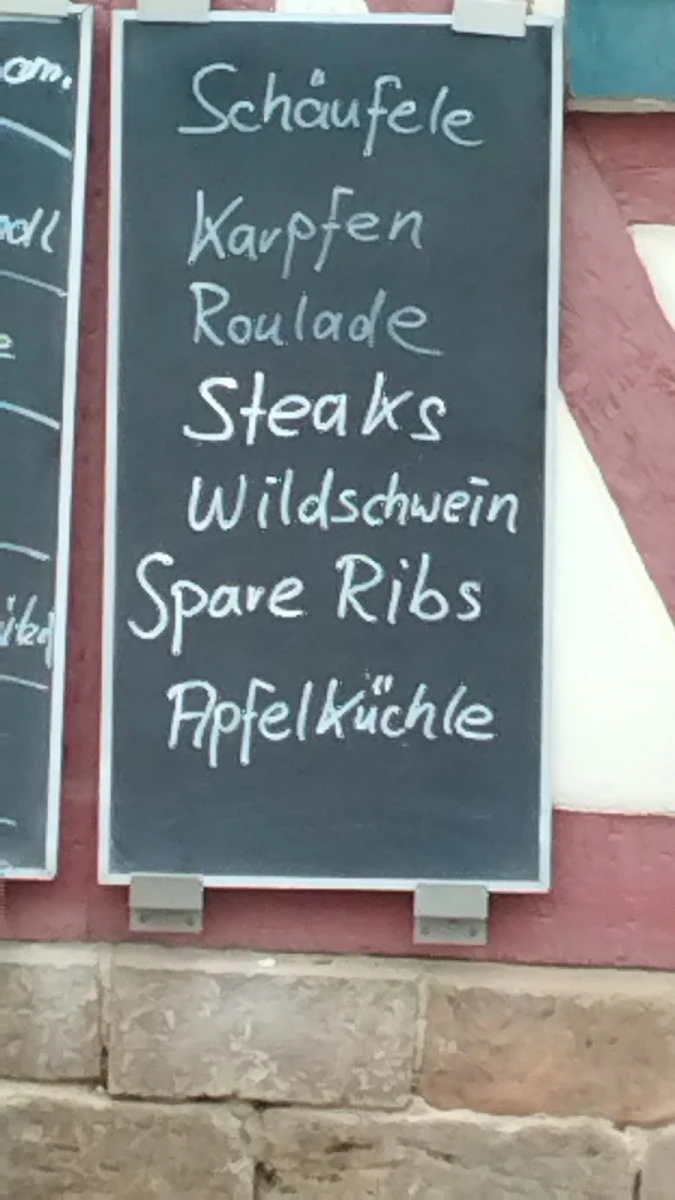 am.
Schäufele
Karpfen
Roulade
Steaks
Wildschwein
Spare Ribs
Apfelküchle